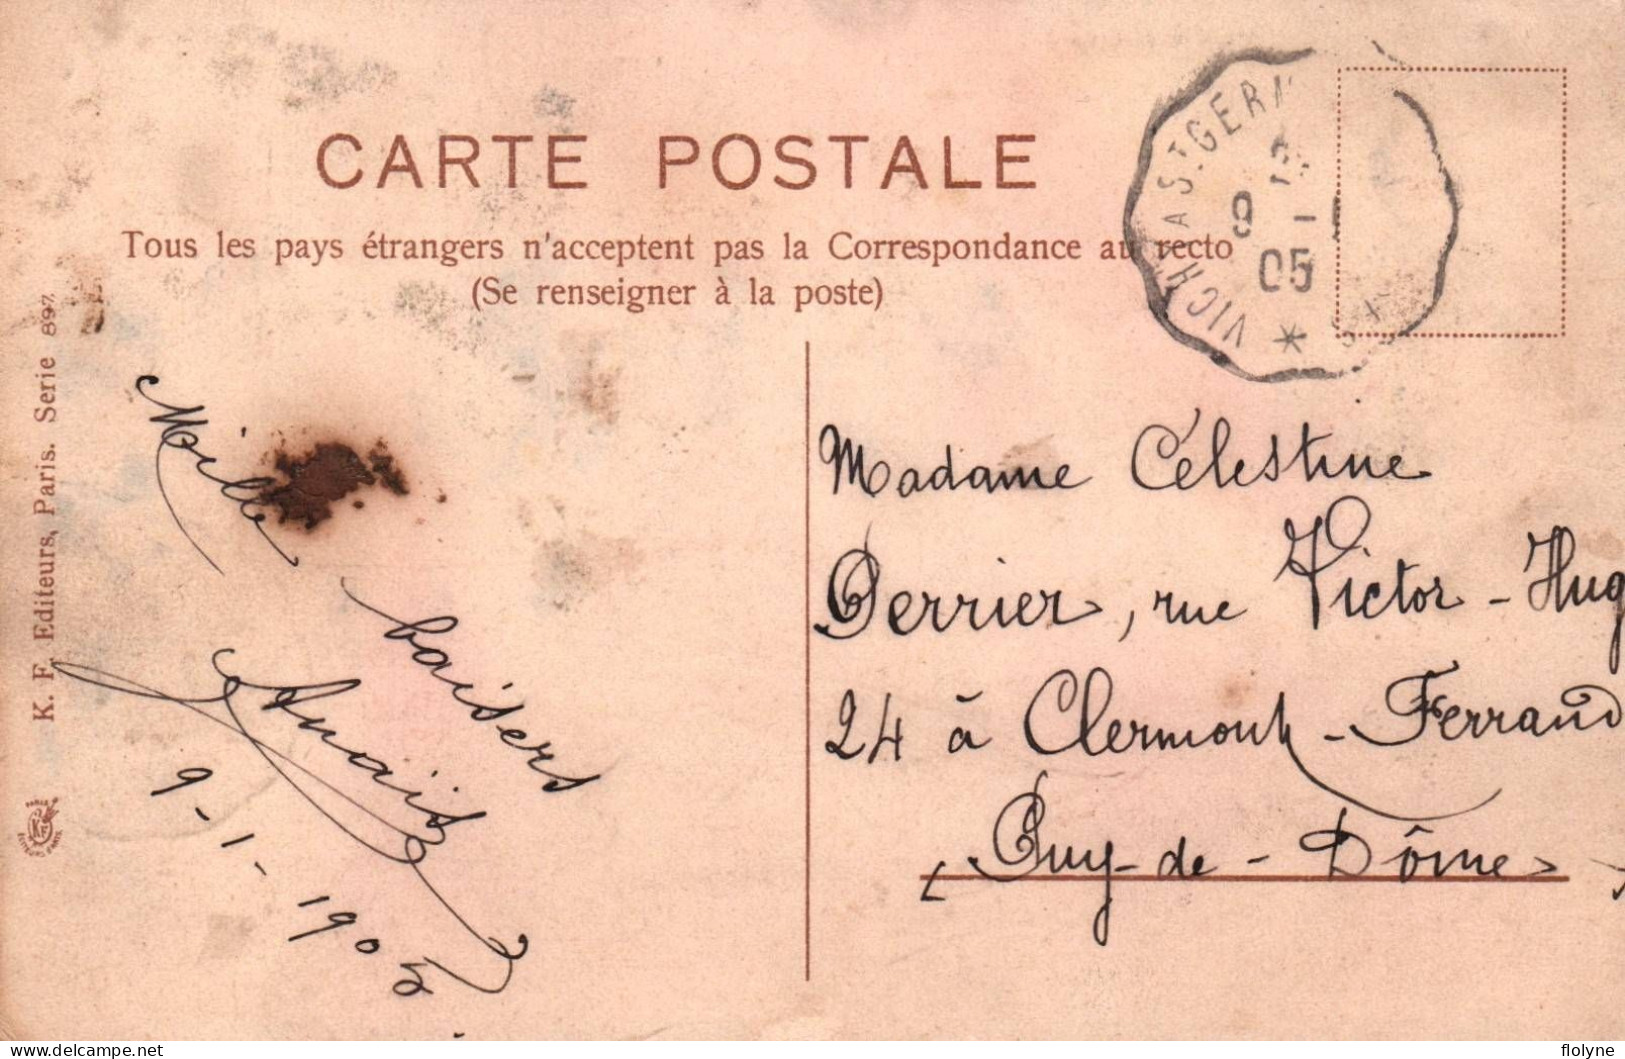 CARTE POSTALE
Tous les pays étrangers n'acceptent pas la Correspondance au recto
(Se renseigner à la poste)
VICH A ST GERM
9 - 1
05
K. F. Editeurs, Paris. Serie 897
Mille
baisers
Anaïs
9-1-1905
Madame Célestine
Perrier, rue Victor-Hug
24 à Clermont-Ferrand
(Puy-de-Dôme)
delcampe.net
flolyne